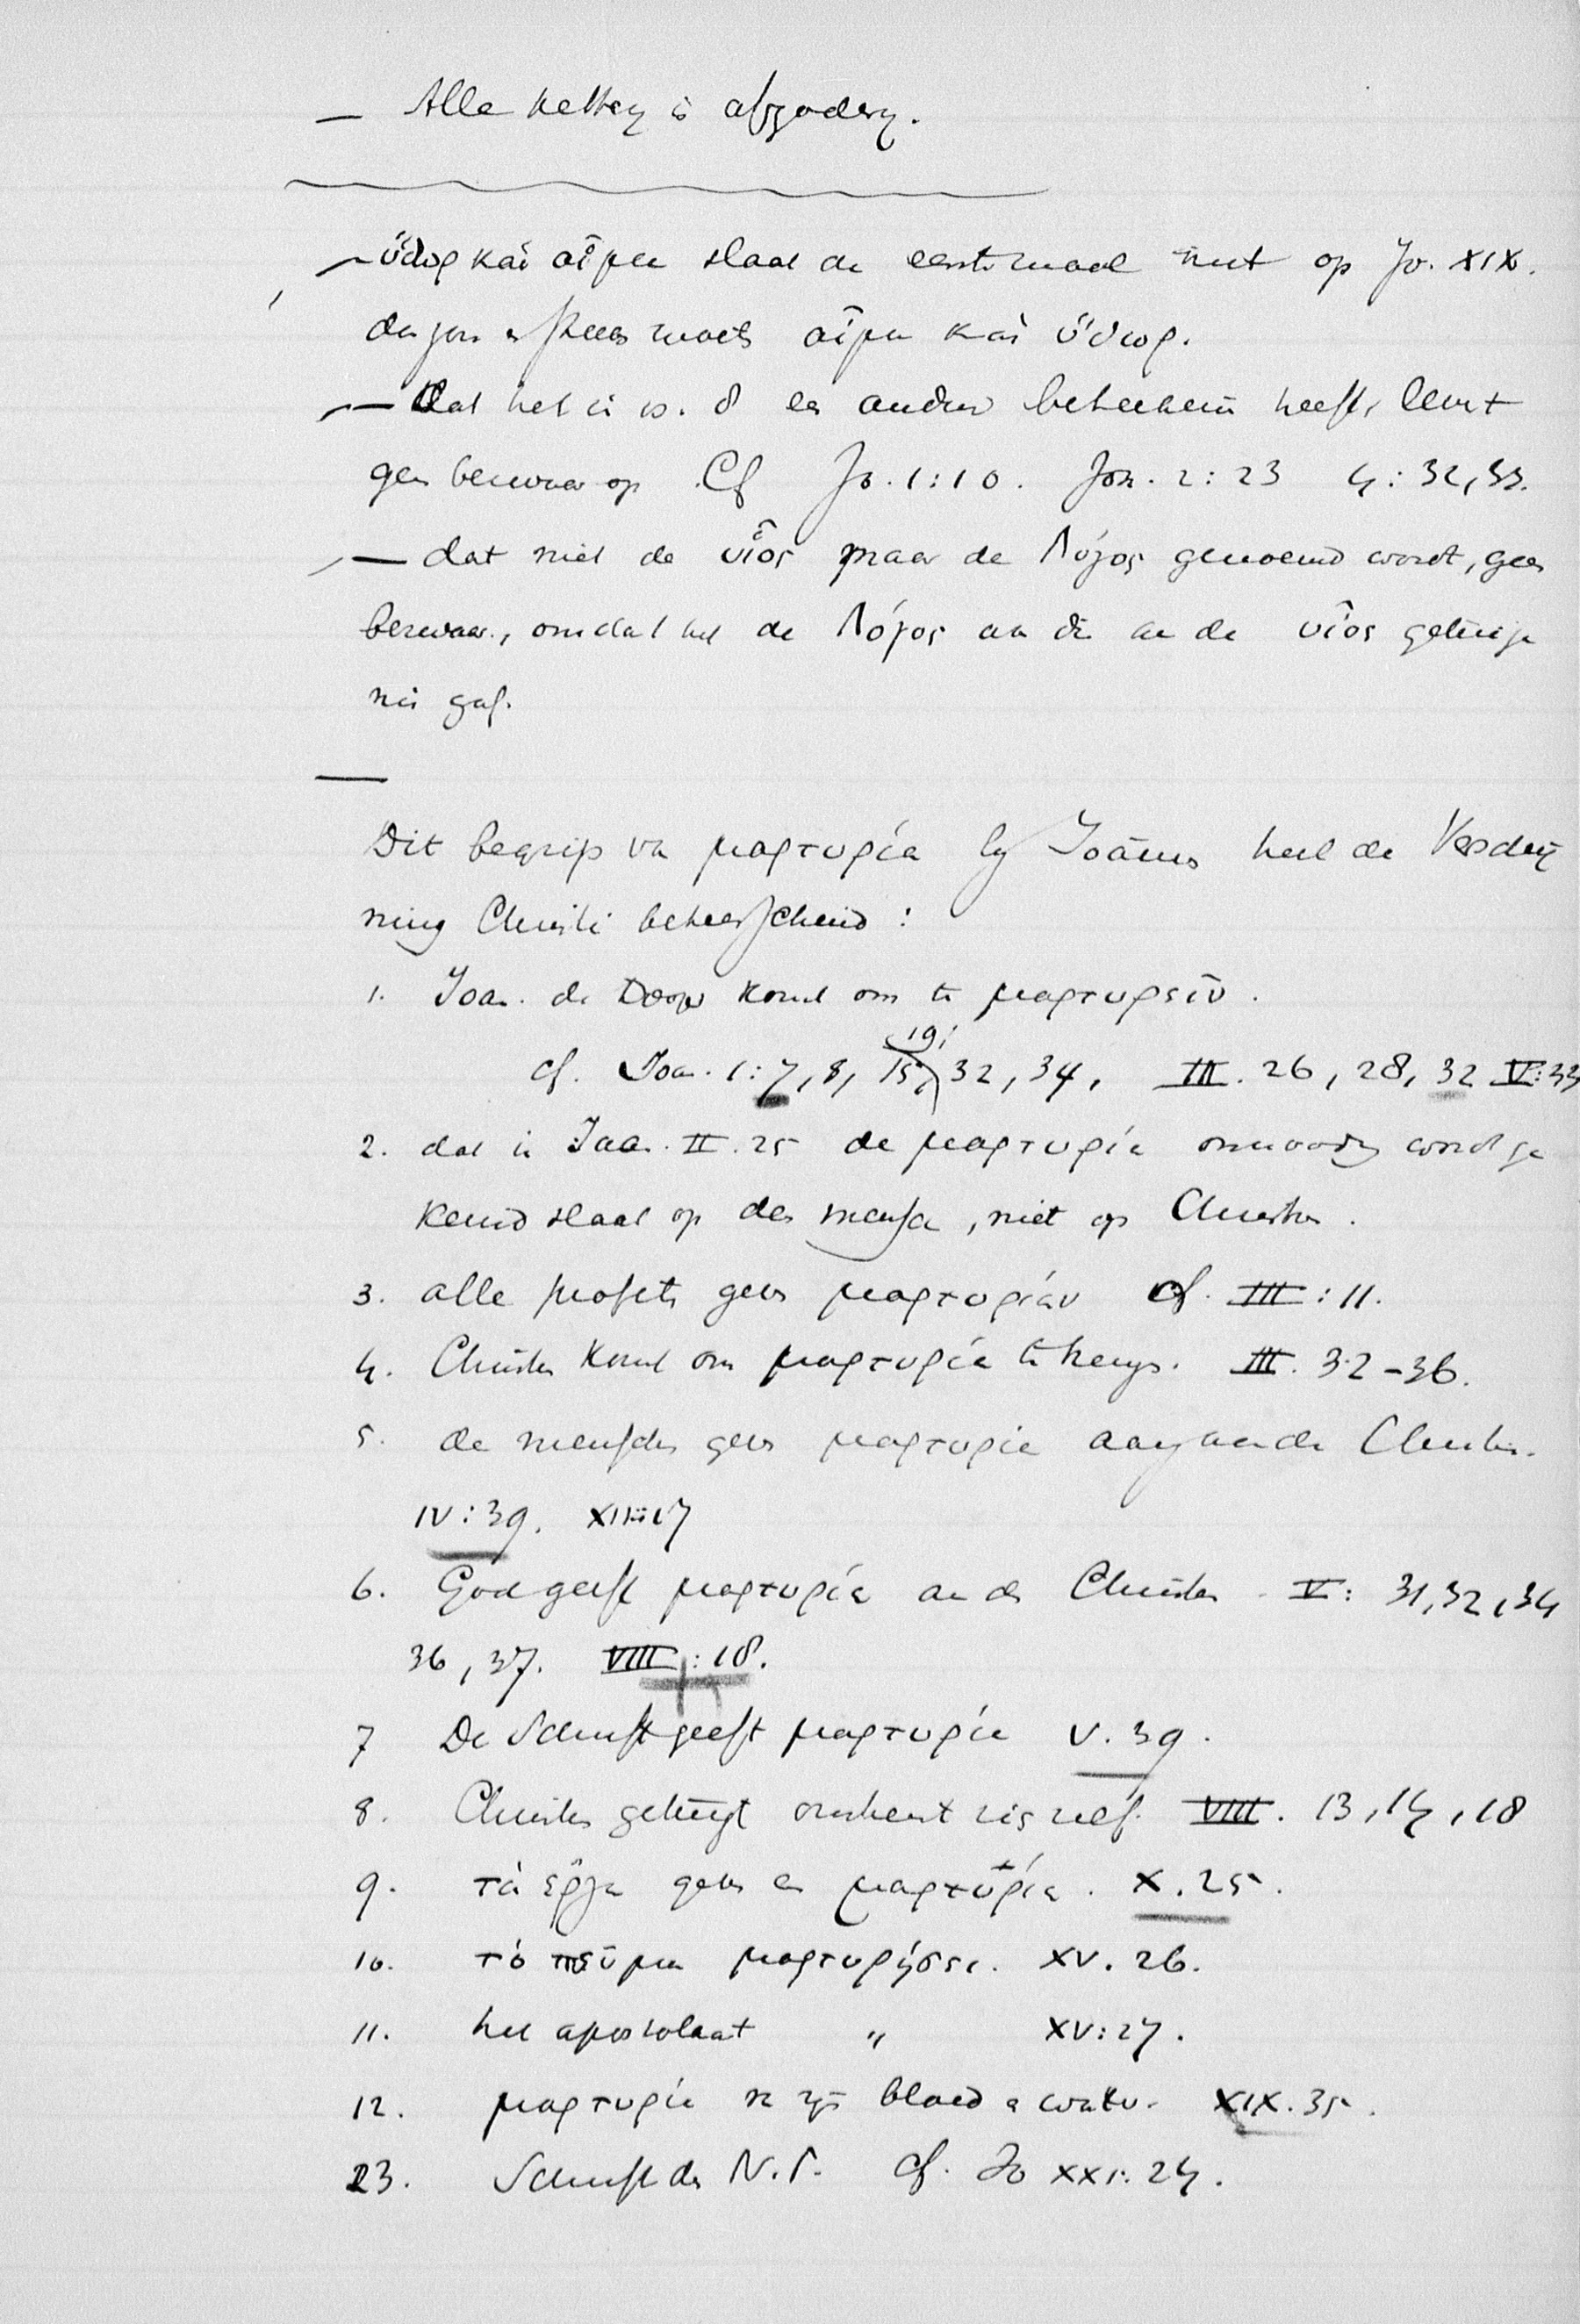 — Alle kettery is afgodery.
— ὕδωρ καὶ αἷμα slaat de eerste maal niet op Jo. XIX.
daar αἷμα καὶ ὕδωρ.
— Dat het in vs. 8 een andere beteekenis heeft, levert
geen bezwaar op Cf Jo. 1:10. Joh. 2:23 4:32,33.
— dat niet de υἱὸς maar de Λόγος genoemd wordt, geen
bezwaar, omdat het de Λόγος en die aan de υἱὸς getuige
nis gaf.
—
Dit begrip van μαρτυρία by Joannes heel de Verschij
ning Christi beheerschend:
1. Joan. de Dooper komt om te μαρτυρεῖν.
19,
cf. Joa. 1:7, 8, 15, 32, 34, III. 26, 28, 32 V:33
2. dat in Joa. II. 25 de μαρτυρία onnoodig wordt ge
kend slaat op den mensch, niet op Christus.
3. alle profeten geven μαρτυρίαν cf. III:11.
4. Christus komt om μαρτυρία te . III. 32-36.
5. de menschen geven μαρτυρία aangaande Christus.
IV:39. XII:17
6. God geeft μαρτυρία aan de Christus V: 31, 32, 34
36, 37. VIII:18.
7 De Schrift geeft μαρτυρία V. 39.
8. Christus getuigt omtrent zich zelf. VIII. 13, 14, 18
9. τὰ ἔργα geven een μαρτυρία. X. 25.
10. τὸ πνεῦμα μαρτυρήσει. XV. 26.
11. het apostolaat " XV:27.
12. μαρτυρία in zijn bloed en water. XIX. 35.
23. Schrift des N.T. cf. Jo XXI:24.